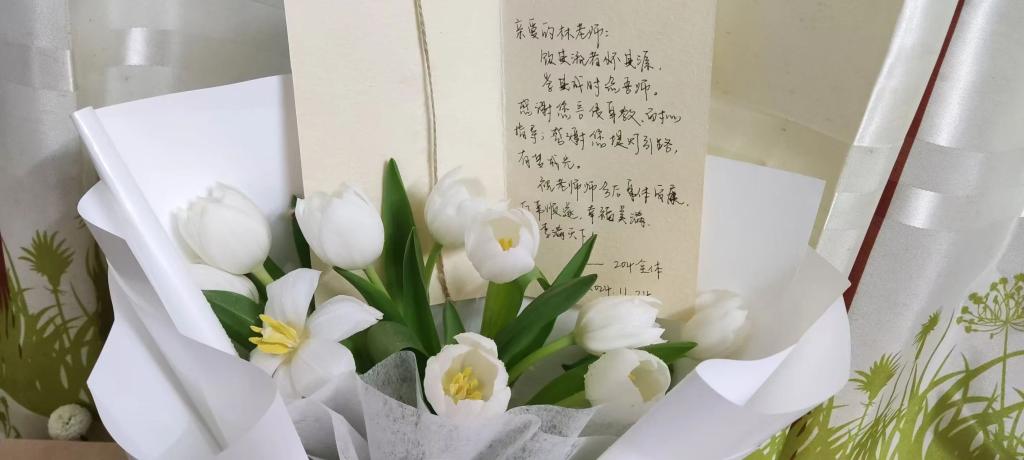 亲爱的林老师:
饮其流者怀其源,
学其成时念吾师。
感谢您言传身教、
指导;感谢您提灯引路,
有梦成光。
祝老师师今后身体健康,
万事顺遂,幸福美满,
李满天下
—— 204全体
2024.11.24